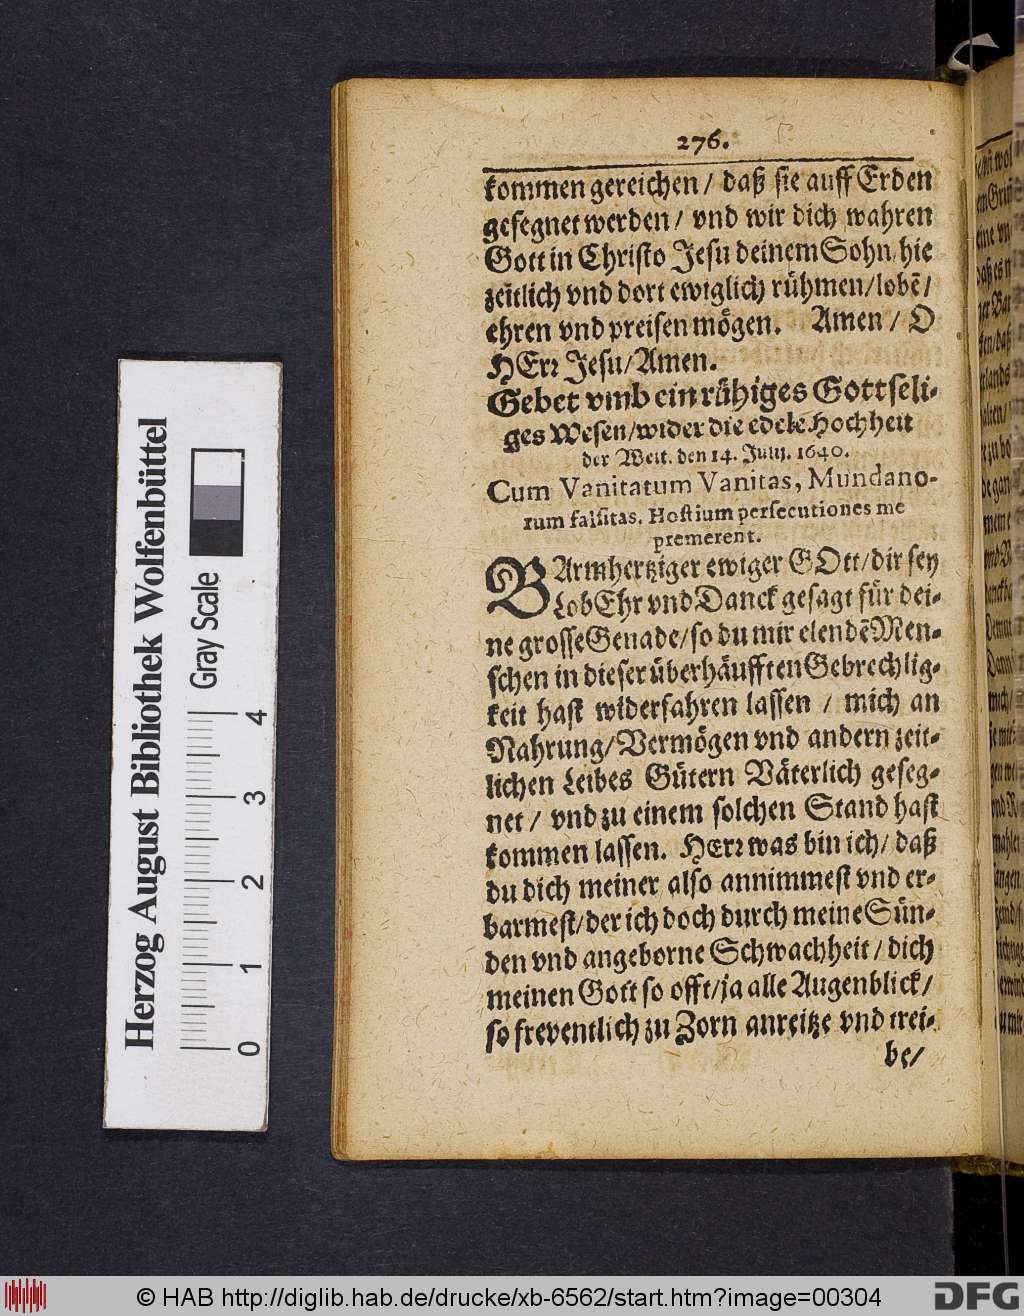 276.
kommen gereichen / daß sie auff Erden
gesegnet werden / vnd wir dich wahren
Gott in Christo Jesu deinem Sohn / hie
zeitlich vnd dort ewiglich rühmen / lobē /
ehren vnd preisen mögen. Amen / O
HErr Jesu / Amen.
Gebet vmb ein rühiges Gottseli-
ges Wesen / wider die edele Hochheit
der Welt. den 14. Julij. 1640.
Cum Vanitatum Vanitas, Mundano-
rum falsitas, Hostium persecutiones me
premerent.
BArmhertziger ewiger GOtt / dir sey
Lob Ehr vnd Danck gesagt für dei-
ne grosse Genade / so du mir elendē Men-
schen in dieser überhäufften Gebrechlig-
keit hast widerfahren lassen / mich an
Nahrung / Vermögen vnd andern zeit-
lichen Leibes Gütern Väterlich geseg-
net / vnd zu einem solchen Stand hast
kommen lassen. HErr was bin ich / daß
du dich meiner also annimmest vnd er-
barmest / der ich doch durch meine Sün-
den vnd angeborne Schwachheit / dich
meinen Gott so offt / ja alle Augenblick /
so freventlich zu Zorn anreitze vnd trei-
be /
Herzog August Bibliothek Wolfenbüttel
Gray Scale
0 1 2 3 4
© HAB http://diglib.hab.de/drucke/xb-6562/start.htm?image=00304
DFG